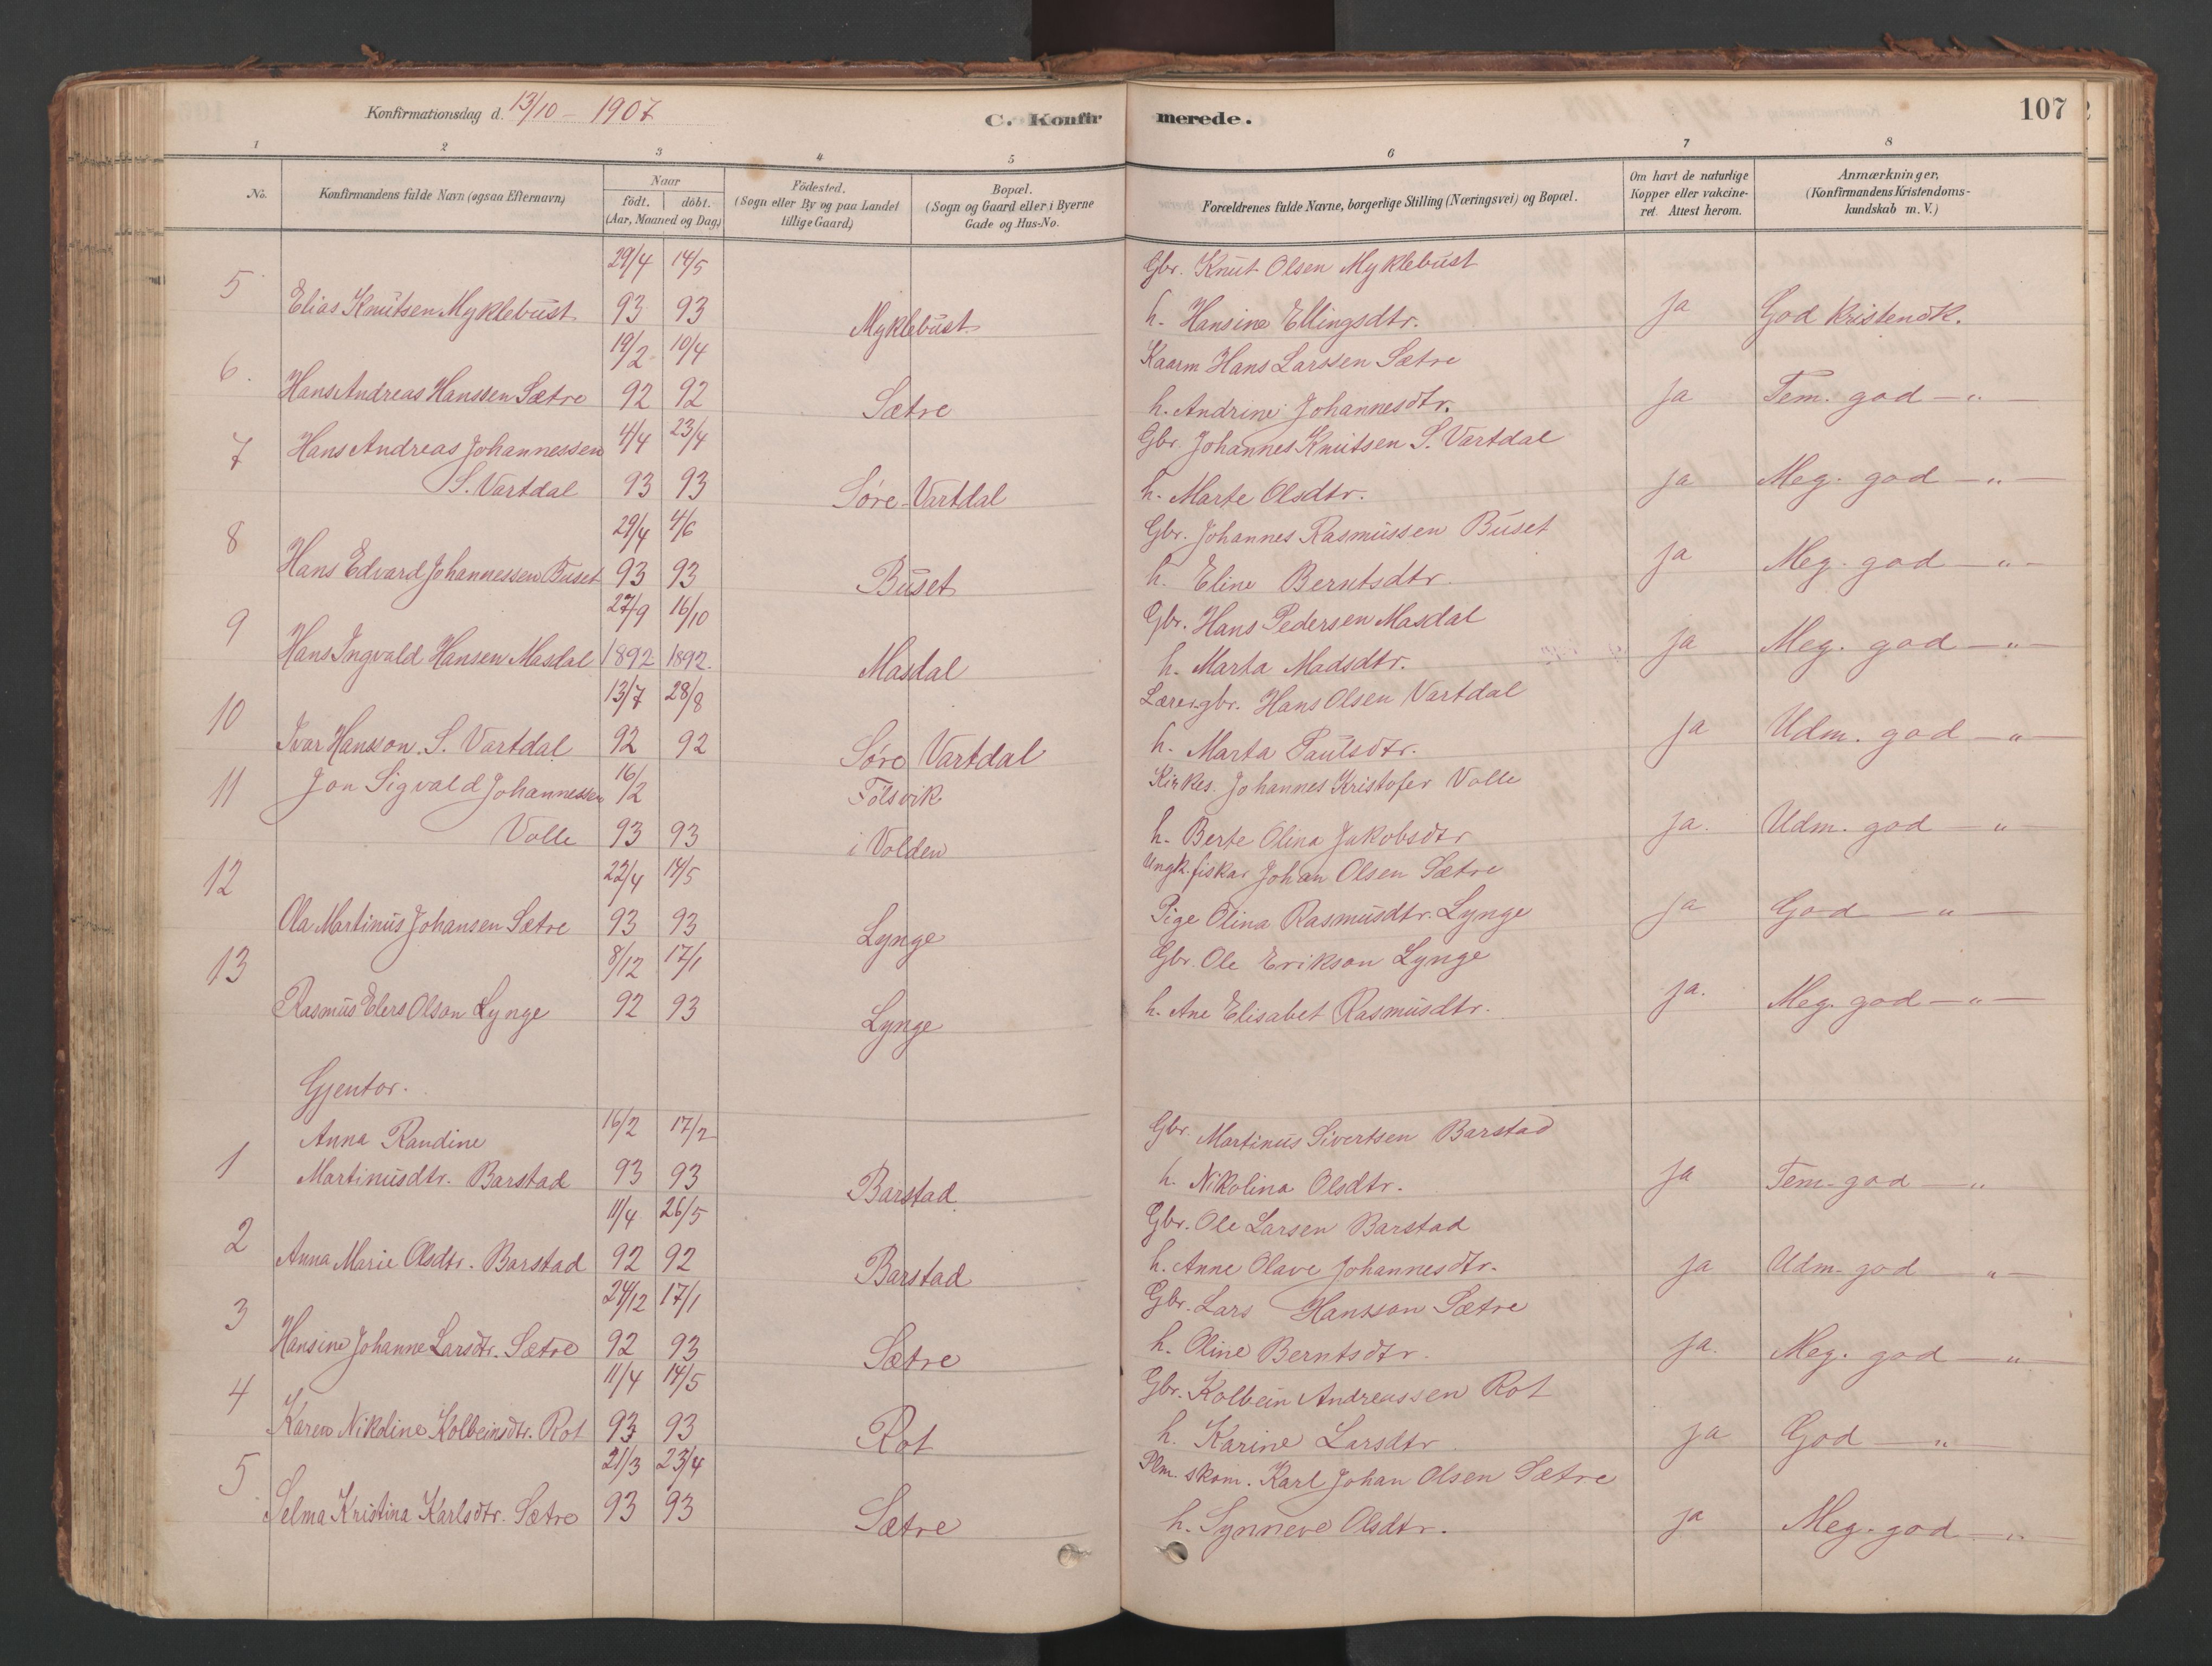 Konfirmationsdag d. 13/10 - 1907
C. Konfirmerede.
107
1 2 3 4 5 6 7 8
No.
Konfirmandens fulde Navn (ogsaa Efternavn)
Naar
födt. döbt.
(Aar, Maaned og Dag)
Födested.
(Sogn eller By og paa Landet
tillige Gaard)
Bopæl.
(Sogn og Gaard eller i Byerne
Gade og Hus-No.
Forældrenes fulde Navne, borgerlige Stilling (Næringsvei) og Bopæl.
Om havt de naturlige
Kopper eller vakcine-
ret. Attest herom.
Anmærkninger,
(Konfirmandens Kristendoms-
kundskab m. V.)
29/4 14/5 Gbr. Knut Olsen Myklebust
5 Elias Knutsen Myklebust 93 93 Myklebust h. Hansine Ellingsdtr. ja God Kristendk.
19/2 10/4 Kaarm Hans Larssen Sætre
6. Hans Andreas Hanssen Sætre 92 92 Sætre h. Andrine Johannesdtr. ja Tem. god - " -
7 Hans Andreas Johannessen 4/4 23/4 Gbr. Johannes Knutsen S. Vartdal
S. Vartdal 93 93 Søre-Vartdal h. Marte Olsdtr. ja Meg. god - " -
29/4 4/6 Gbr. Johannes Rasmussen Buset
8 Hans Edvard Johannessen Buset 93 93 Buset h. Eline Berntsdtr. ja Meg. god - " -
27/9 16/10 Gbr. Hans Pedersen Masdal
9 Hans Ingvald Hansen Masdal 1892 1892. Masdal h. Marta Madsdtr. ja Meg. god - " -
13/7 28/8 Lærer gbr. Hans Olsen Vartdal
10 Ivar Hansson S. Vartdal 92 92 Søre Vartdal h. Marta Paulsdtr. ja Udm. god - " -
11 Jon Sigvald Johannessen 16/2 Folsvik Kirkes. Johannes Kristofer Volle
Volle 93 93 i Volden h. Berte Olina Jakobsdtr ja. Udm. god - " -
22/4 14/5 Ungk. fiskar Johan Olsen Sætre
12 Ola Martinus Johansen Sætre 93 93 Lynge Pige Olina Rasmusdtr. Lynge ja God - " -
8/12 17/1 Gbr. Ole Erikson Lynge
13 Rasmus Elers Olson Lynge 92 93 Lynge h. Ane Elisabet Rasmusdtr. ja. Meg. god - " -
Gjentor.
Anna Randine 16/2 17/2 Gbr Martinus Sivertsen Barstad
1 Martinusdtr. Barstad 93 93 Barstad h. Nikolina Olsdtr. ja Tem. god - "
11/4 26/5 Gbr. Ole Larsen Barstad
2 Anna Marie Olsdtr. Barstad 92 92 Barstad h. Anne Olave Johannesdtr. ja Udm. god - " -
24/12 17/1 Gbr. Lars Hansson Sætre
3 Hansine Johanne Larsdtr. Sætre 92 93 Sætre h. Oline Berntsdtr. ja. Meg. god - "
11/4 14/5 Gbr. Kolbein Andreassen Rot
4 Karen Nikoline Kolbeinsdtr. Rot 93 93 Rot h. Karine Larsdtr ja God - "
21/3 23/4 Plm. skom. Karl Johan Olsen Sætre
5 Selma Kristina Karlsdtr. Sætre 93 93 Sætre h. Synneve Olsdtr. ja Meg. god - "